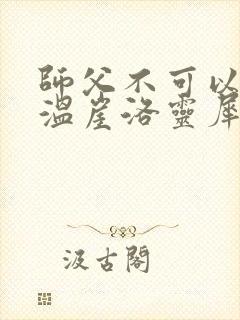 師父不可以
溫崖洛靈犀
汲古閣